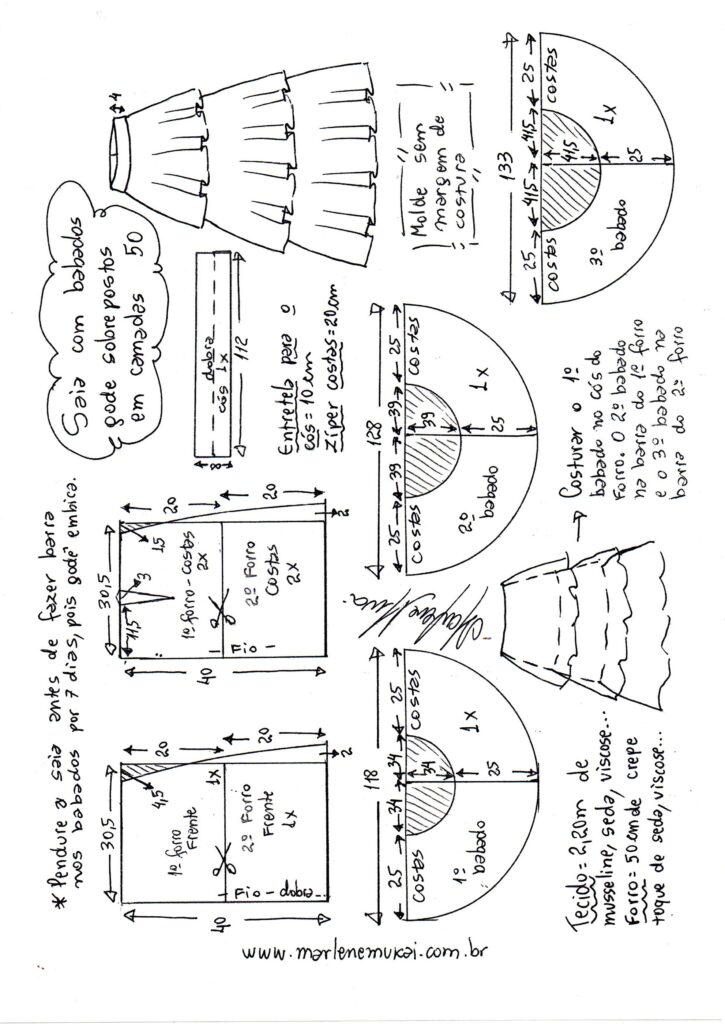 Saia com babados
gode sobrepostos
em camadas 50
4
* Pendure a saia antes de fazer barra
nos babados por 7 dias, pois godê embica.
dobra
cós 1x
112
8
Entretela para o
cós = 10 cm
Zíper costas = 20 cm
Molde sem
margem de
costura
30,5
4,5
20
20
2
40
1º forro
Frente
1x
2º Forro
Frente
1x
Fio - dobra
30,5
11,5
3
1,5
20
20
2
40
1º forro - costas
2x
2º Forro
Costas
2x
Fio
118
25
34
34
25
costas
costas
34
25
1º
babado
1x
128
25
39
39
25
costas
costas
39
25
2º
babado
1x
133
25
41,5
41,5
25
costas
costas
41,5
25
3º
babado
1x
Tecido = 2,20m de
musseline, seda, viscose...
Forro = 50 cm de crepe
toque de seda, viscose...
Costurar o 1º
babado no cós do
Forro. O 2º babado
na barra do 1º forro
e o 3º babado na
barra do 2º forro
www.marlenemukai.com.br